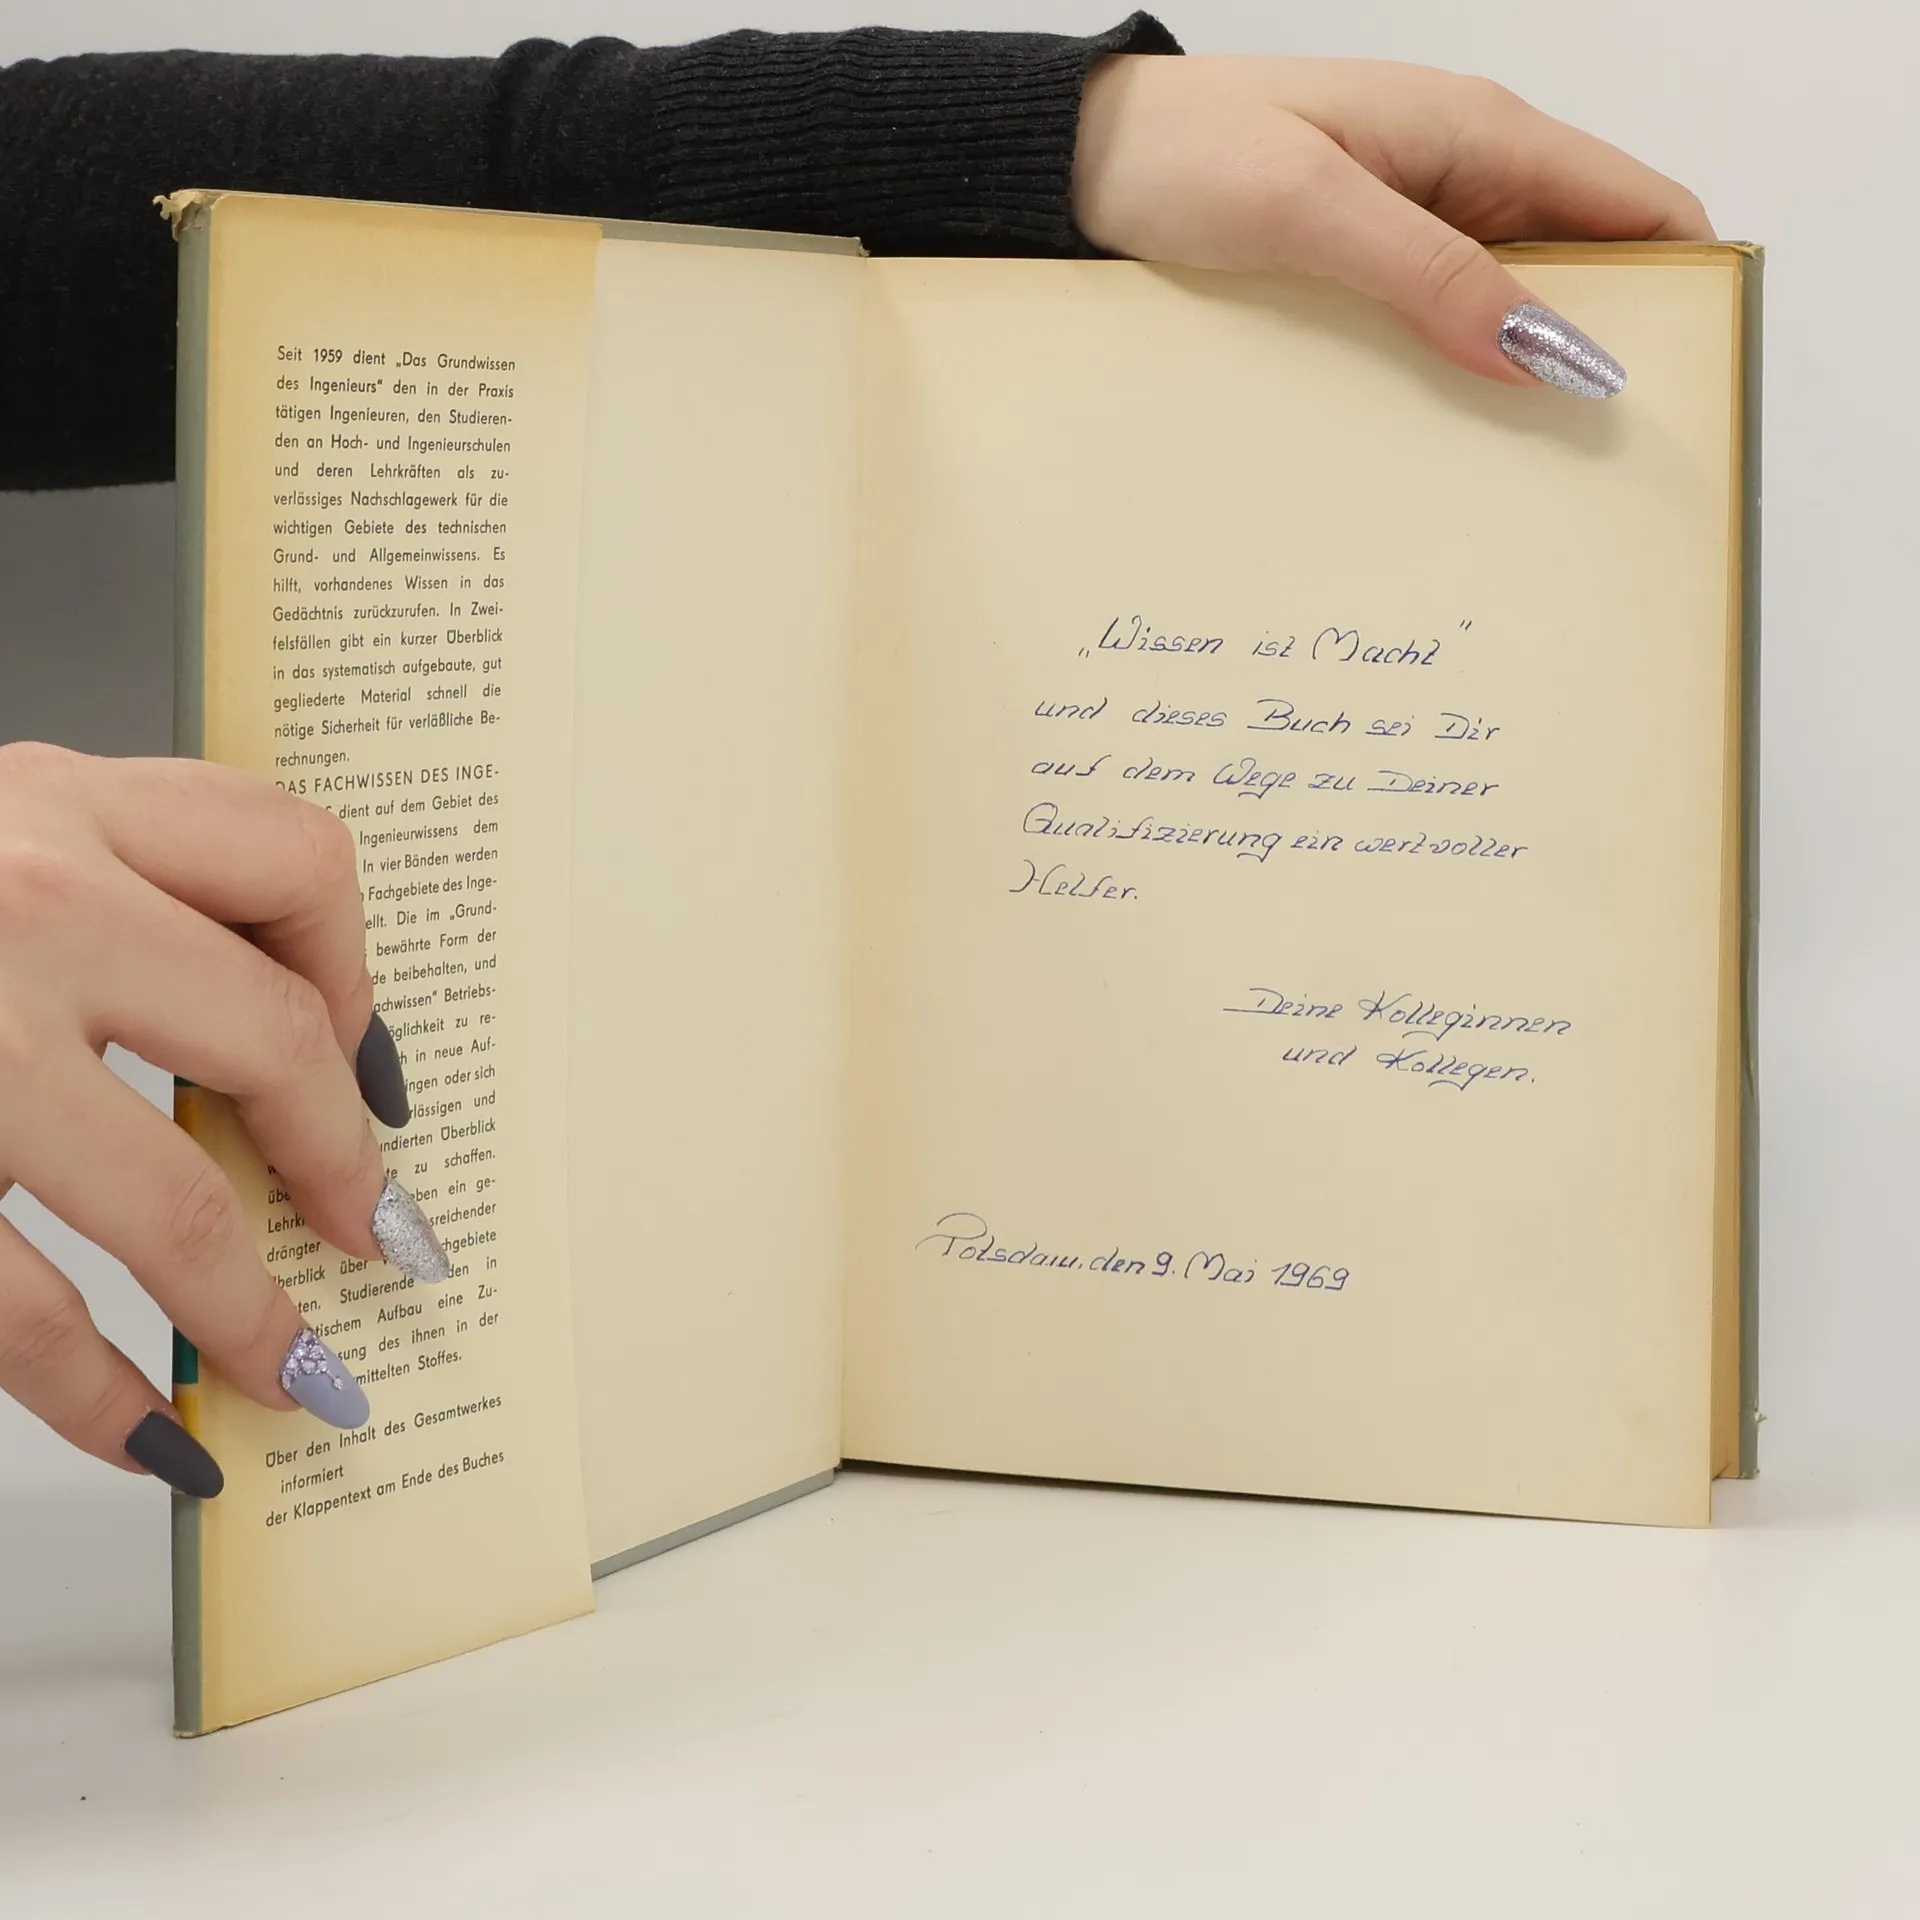 Seit 1959 dient „Das Grundwissen
des Ingenieurs“ den in der Praxis
tätigen Ingenieuren, den Studieren-
den an Hoch- und Ingenieurschulen
und deren Lehrkräften als zu-
verlässiges Nachschlagewerk für die
wichtigen Gebiete des technischen
Grund- und Allgemeinwissens. Es
hilft, vorhandenes Wissen in das
Gedächtnis zurückzurufen. In Zwei-
felsfällen gibt ein kurzer Überblick
in das systematisch aufgebaute, gut
gegliederte Material schnell die
nötige Sicherheit für verläßliche Be-
rechnungen.
DAS FACHWISSEN DES INGE-
dient auf dem Gebiet des
Ingenieurwissens dem
In vier Bänden werden
Fachgebiete des Inge-
ellt. Die im „Grund-
bewährte Form der
de beibehalten, und
achwissen“ Betriebs-
öglichkeit zu re-
in neue Auf-
ingen oder sich
rlässigen und
undierten Überblick
te zu schaffen.
eben ein ge-
Lehrk sreichender
drängter chgebiete
berblick über den in
ten. Studierende
tischem Aufbau eine Zu-
sung des ihnen in der
mittelten Stoffes.
Über den Inhalt des Gesamtwerkes
informiert
der Klappentext am Ende des Buches
„Wissen ist Macht“
und dieses Buch sei Dir
auf dem Wege zu Deiner
Qualifizierung ein wertvoller
Helfer.
Deine Kolleginnen
und Kollegen.
Potsdam, den 9. Mai 1969